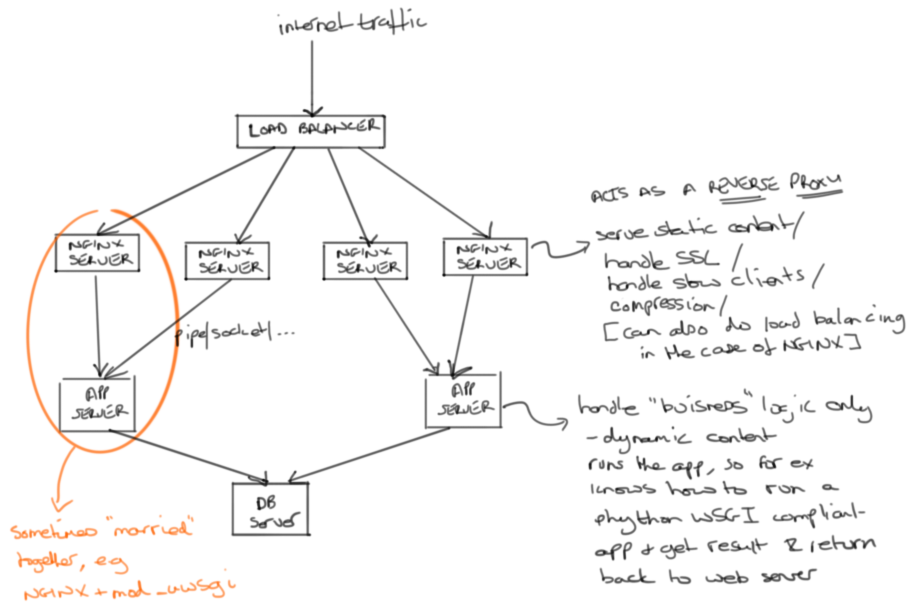 internet traffic
LOAD BALANCER
NGINX
SERVER
NGINX
SERVER
NGINX
SERVER
NGINX
SERVER
ACTS AS A REVERSE PROXY
serve static content/
handle SSL /
handle slow clients/
compression/
[can also do load balancing
in the case of NGINX]
pipe/socket/...
APP
SERVER
APP
SERVER
handle "buisness" logic only
- dynamic content
runs the app, so for ex
knows how to run a
phython WSGI compliant
app & get result & return
back to web server
DB
Server
sometimes "married"
together, e.g
NGINX + mod_uwsgi